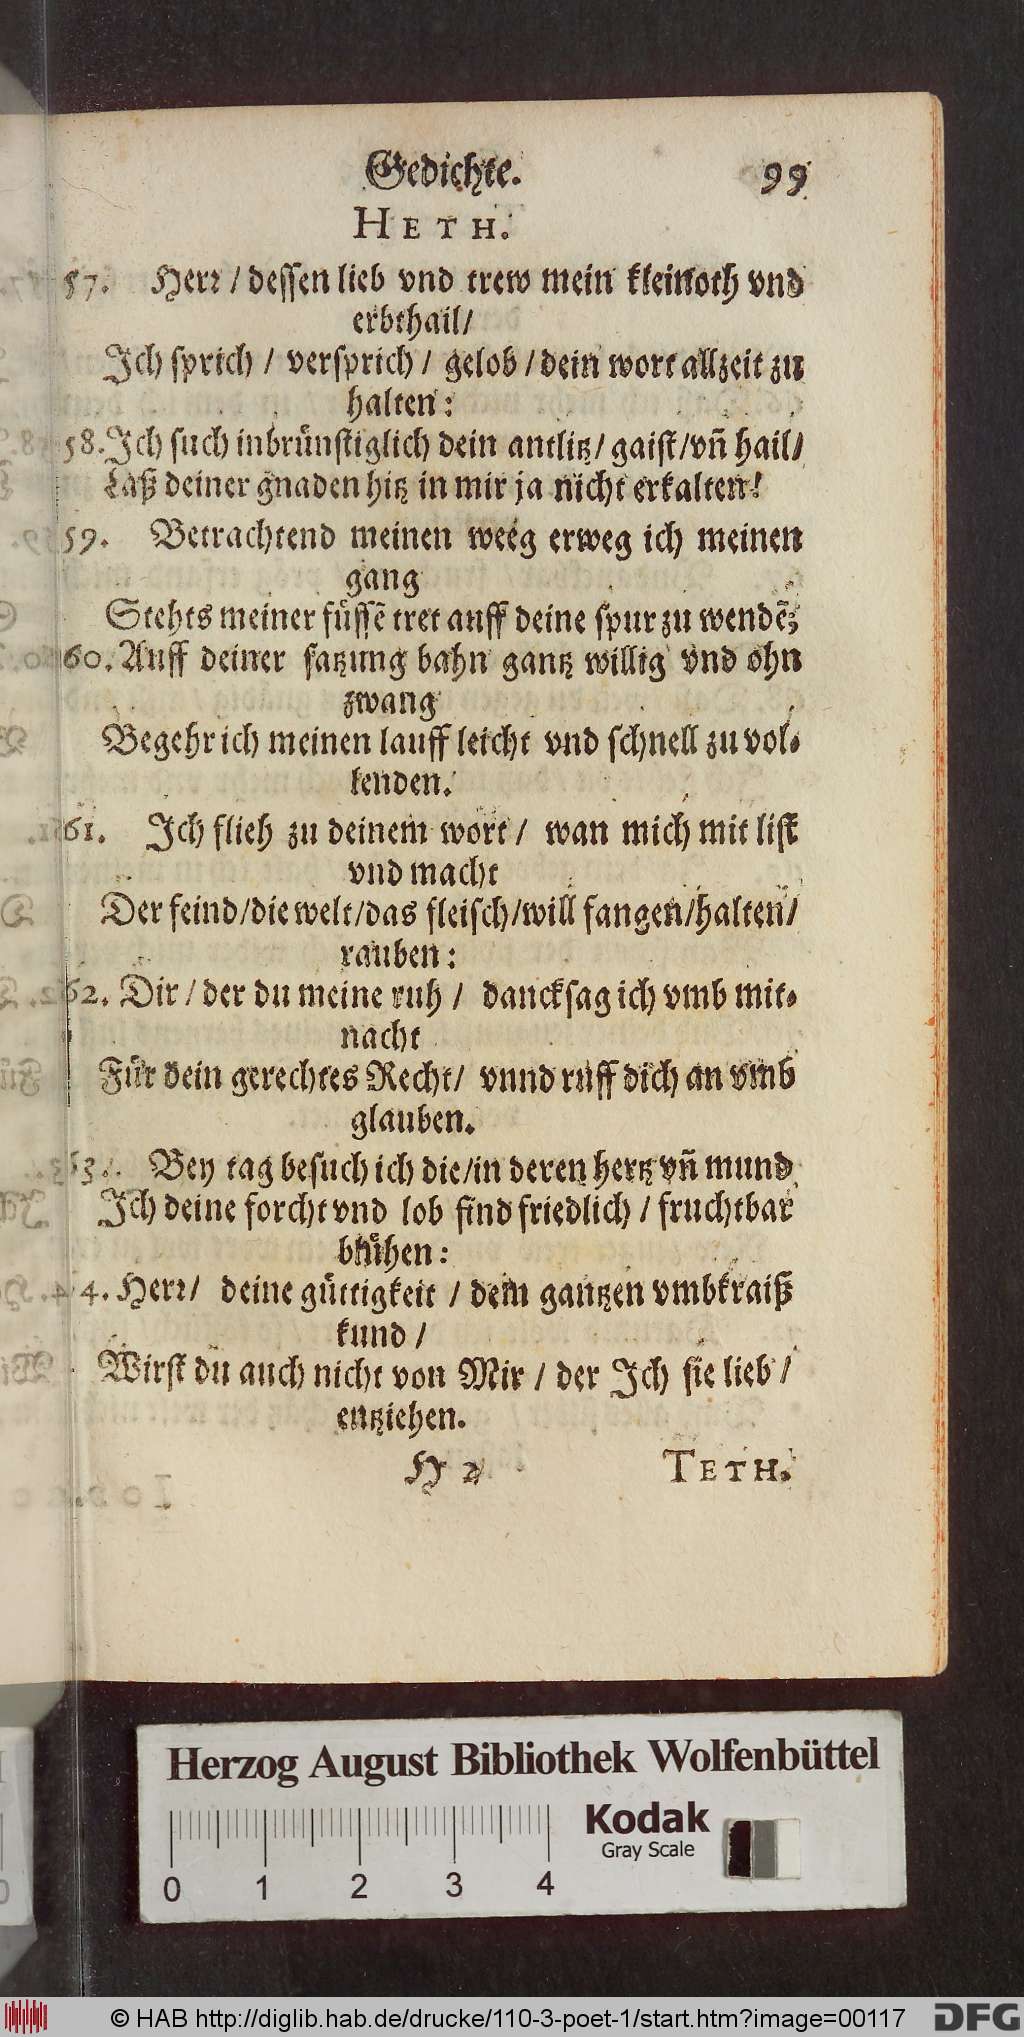 Gedichte. 99
HETH.
57. Herr / dessen lieb vnd trew mein kleinoth vnd
erbthail/
Ich sprich / versprich / gelob / dein wort allzeit zu
halten:
58. Ich such inbrünstiglich dein antlitz / gaist / vñ hail/
Laß deiner gnaden hitz in mir ja nicht erkalten!
59. Betrachtend meinen weeg erweg ich meinen
gang
Stehts meiner füssē tret auff deine spur zu wendē;
60. Auff deiner satzung bahn gantz willig vnd ohn
zwang
Begehr ich meinen lauff leicht vnd schnell zu vol-
lenden.
61. Ich flieh zu deinem wort / wan mich mit list
vnd macht
Der feind/die welt/das fleisch/will fangen/halten/
rauben:
62. Dir / der du meine ruh / dancksag ich vmb mit-
nacht
Für dein gerechtes Recht/ vnnd ruff dich an vmb
glauben.
63. Bey tag besuch ich die/in deren hertz vñ mund
Ich deine forcht vnd lob find friedlich / fruchtbar
blühen:
4. Herr/ deine güttigkeit / dem gantzen vmbkraiß
kund /
Wirst du auch nicht von Mir / der Ich sie lieb /
entziehen.
H 2 TETH.
Herzog August Bibliothek Wolfenbüttel
Kodak
Gray Scale
0 1 2 3 4
© HAB http://diglib.hab.de/drucke/110-3-poet-1/start.htm?image=00117 DFG